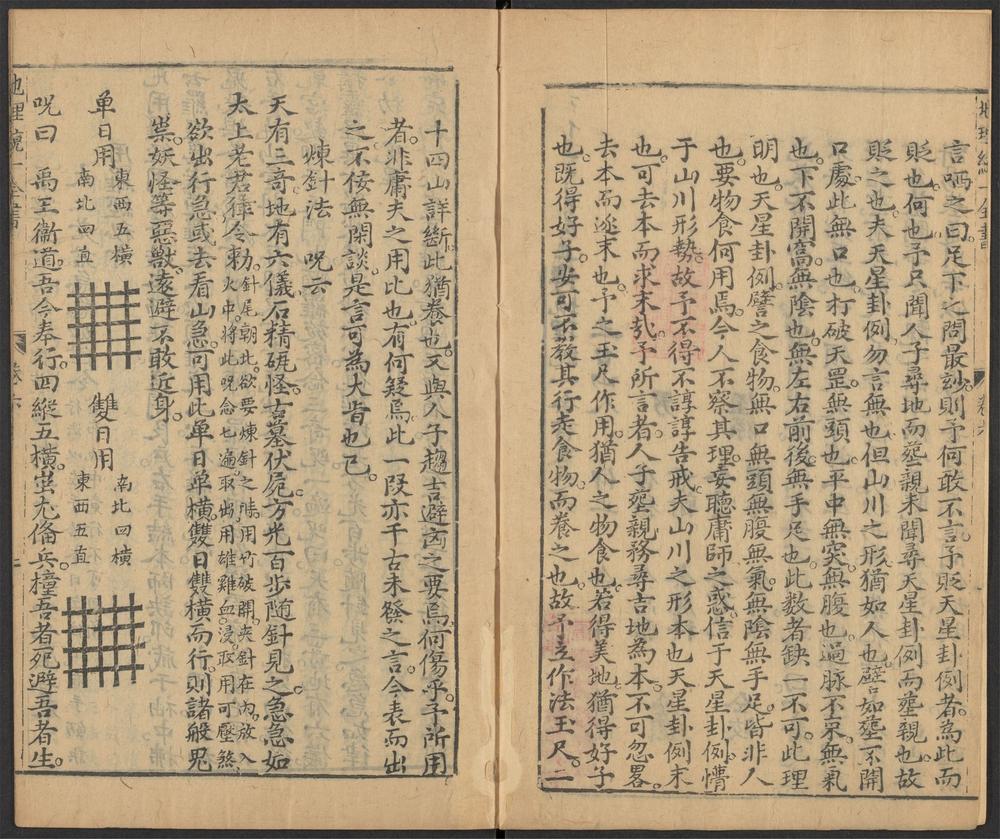 言哂之曰足下之問最玅則予何敢不言予貶天星卦例者為此而
貶也何也予只聞人子尋地而塟親未聞尋天星卦例而塟親也故
貶之也夫天星卦例勿言無也但山川之形猶如人也譬如塟不開
口處此無口也打破天罡無頭也平中無突無腹也過脉不呆無氣
也下不開窩無陰也無左右前後無手足也此数者缺一不可此理
明也天星卦例譬之食物無口無頭無腹無氣無陰無手足皆非人
也要物食何用焉今人不察其理妄聽庸師之惑信于天星卦例懵
于山川形勢故予不得不諄諄告戒夫山川之形本也天星卦例末
也可去本而求末㢤予所言者人子塟親務尋吉地為本不可忽畧
去本而逐末也予之玉尺作用猶人之物食也若得美地猶得好子
也既得好子安可不教其行走食物而養之也故予立作法王尺二
地理統一全書
卷六
十四山詳斷此猶養也又與人子趨吉避凶之要焉何傷乎予所用
者非庸夫之用此也有何疑焉此一叚亦千古未發之言今表而出
之不佞無閑談是言可為大旨也已
煉針法 呪云
天有三奇地有六儀石精砥怪古墓伏屍方光百步随針見之急急如
太上老君律令勅
針尾朝北欲要煉針之時用竹破開夾針在内放入
火中將此呪念七遍取出用雄雞血浸取用可壓煞
欲出行急或去看山急可用此单日单橫雙日雙橫而行則諸般鬼
祟妖怪等惡獸遠避不敢近身
单日用
東西五橫
南北四直
雙日用
南北四橫
東西五直
呪曰 禹王衞道吾今奉行四縱五橫蚩尤偹兵橦吾者死避吾者生
地理統一全書
卷六